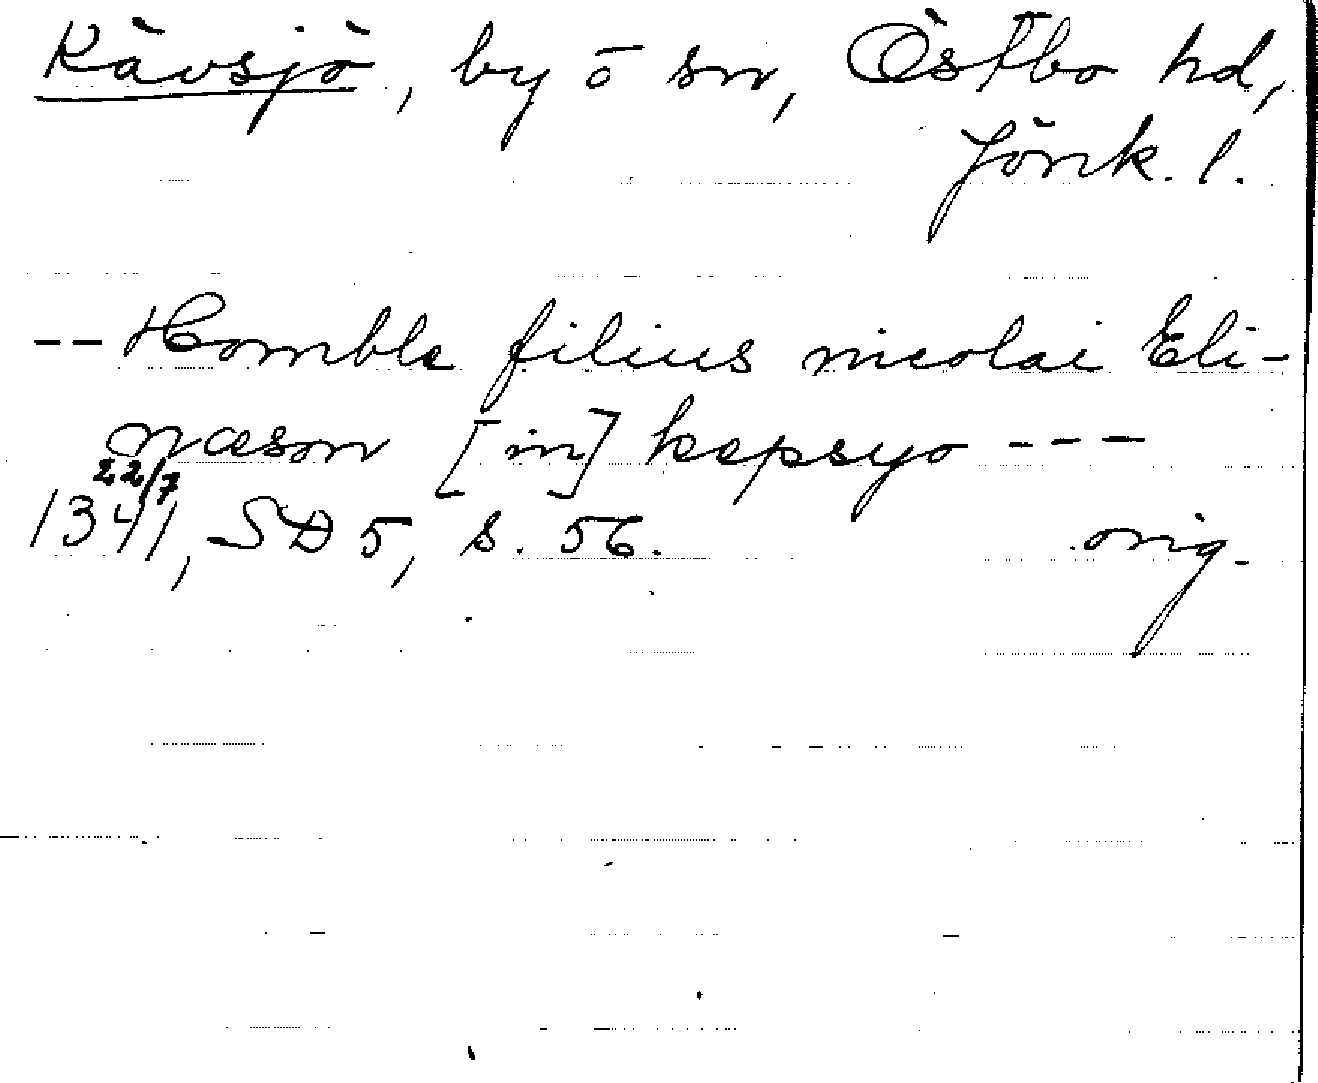 Kävsjö, by o sn, Östbo hd,
Jönk. l.
-- Homble filius nicolai Eli-
næson [in] kæpsyo ---
22/7
1341, SD 5, s. 56. orig.